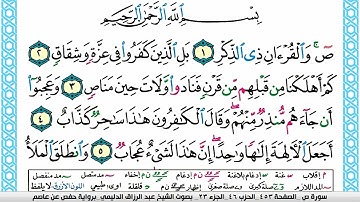 بِسْمِ ٱللَّهِ ٱلرَّحْمَٰنِ ٱلرَّحِيمِ
صٓ ۚ وَٱلْقُرْءَانِ ذِى ٱلذِّكْرِ ١ بَلِ ٱلَّذِينَ كَفَرُوا۟ فِى عِزَّةٍ وَشِقَاقٍ ٢
كَمْ أَهْلَكْنَا مِن قَبْلِهِم مِّن قَرْنٍ فَنَادَوا۟ وَّلَاتَ حِينَ مَنَاصٍ ٣ وَعَجِبُوٓا۟
أَن جَآءَهُم مُّنذِرٌ مِّنْهُمْ ۖ وَقَالَ ٱلْكَٰفِرُونَ هَٰذَا سَٰحِرٌ كَذَّابٌ ٤
أَجَعَلَ ٱلْءَالِهَةَ إِلَٰهًا وَٰحِدًا ۖ إِنَّ هَٰذَا لَشَىْءٌ عُجَابٌ ٥ وَٱنطَلَقَ ٱلْمَلَأُ
سورة ص الصفحة ٤٥٣ الحزب ٤٦ الجزء ٢٣ بصوت الشيخ عبد الرزاق الدليمي برواية حفص عن عاصم